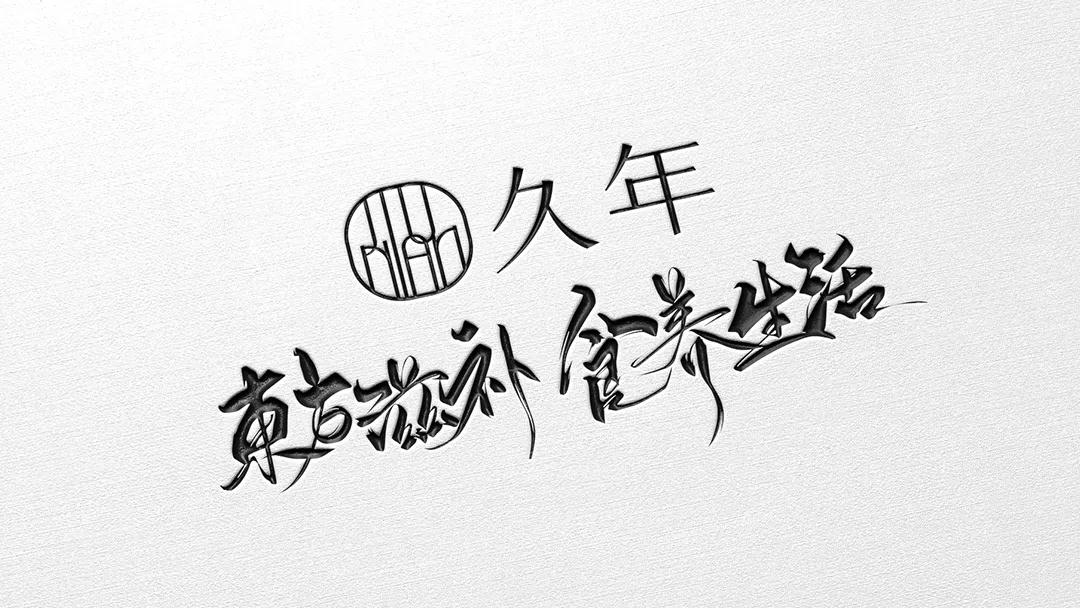 久年
東方滋补 食养生活